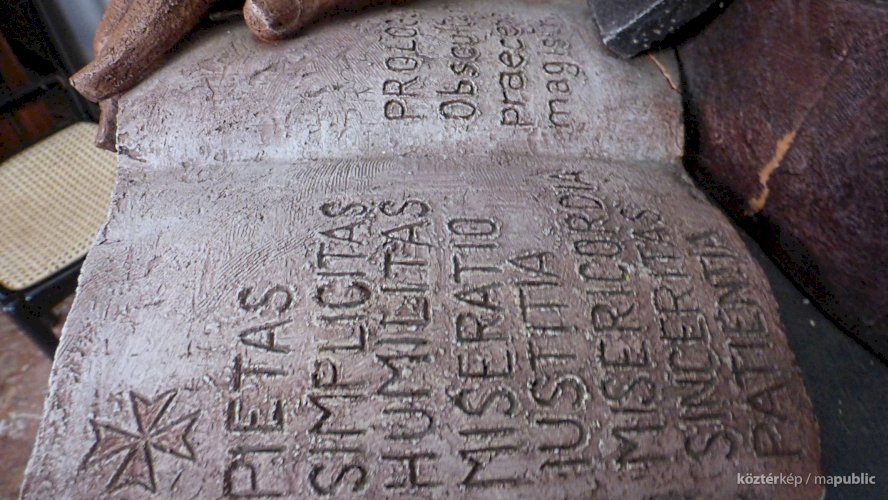 PROLOG
Obscul
praecep
magistr
PIETAS
SIMPLICITAS
HUMILITAS
MISERATIO
IUSTITIA
MISERICORDIA
SINCERITAS
PATIENTIA
köztérkép / mapublic